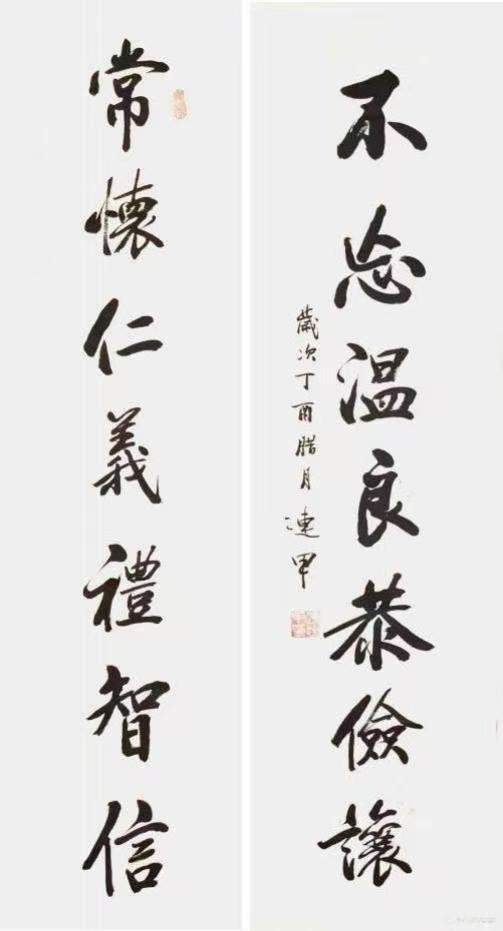 常懷仁義禮智信
不忘温良恭儉讓
歲次丁酉腊月連甲